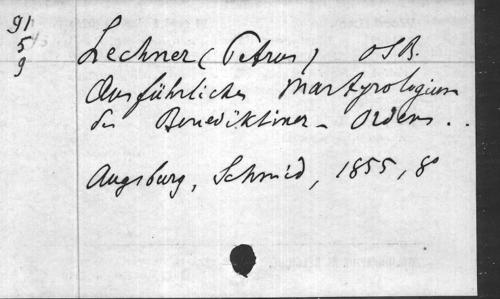 91
5
9
Lechner (Petrus) OSB.
Ausführliches Martyrologium
des Benediktiner-Ordens ..
Augsburg, Schmid, 1855, 8°